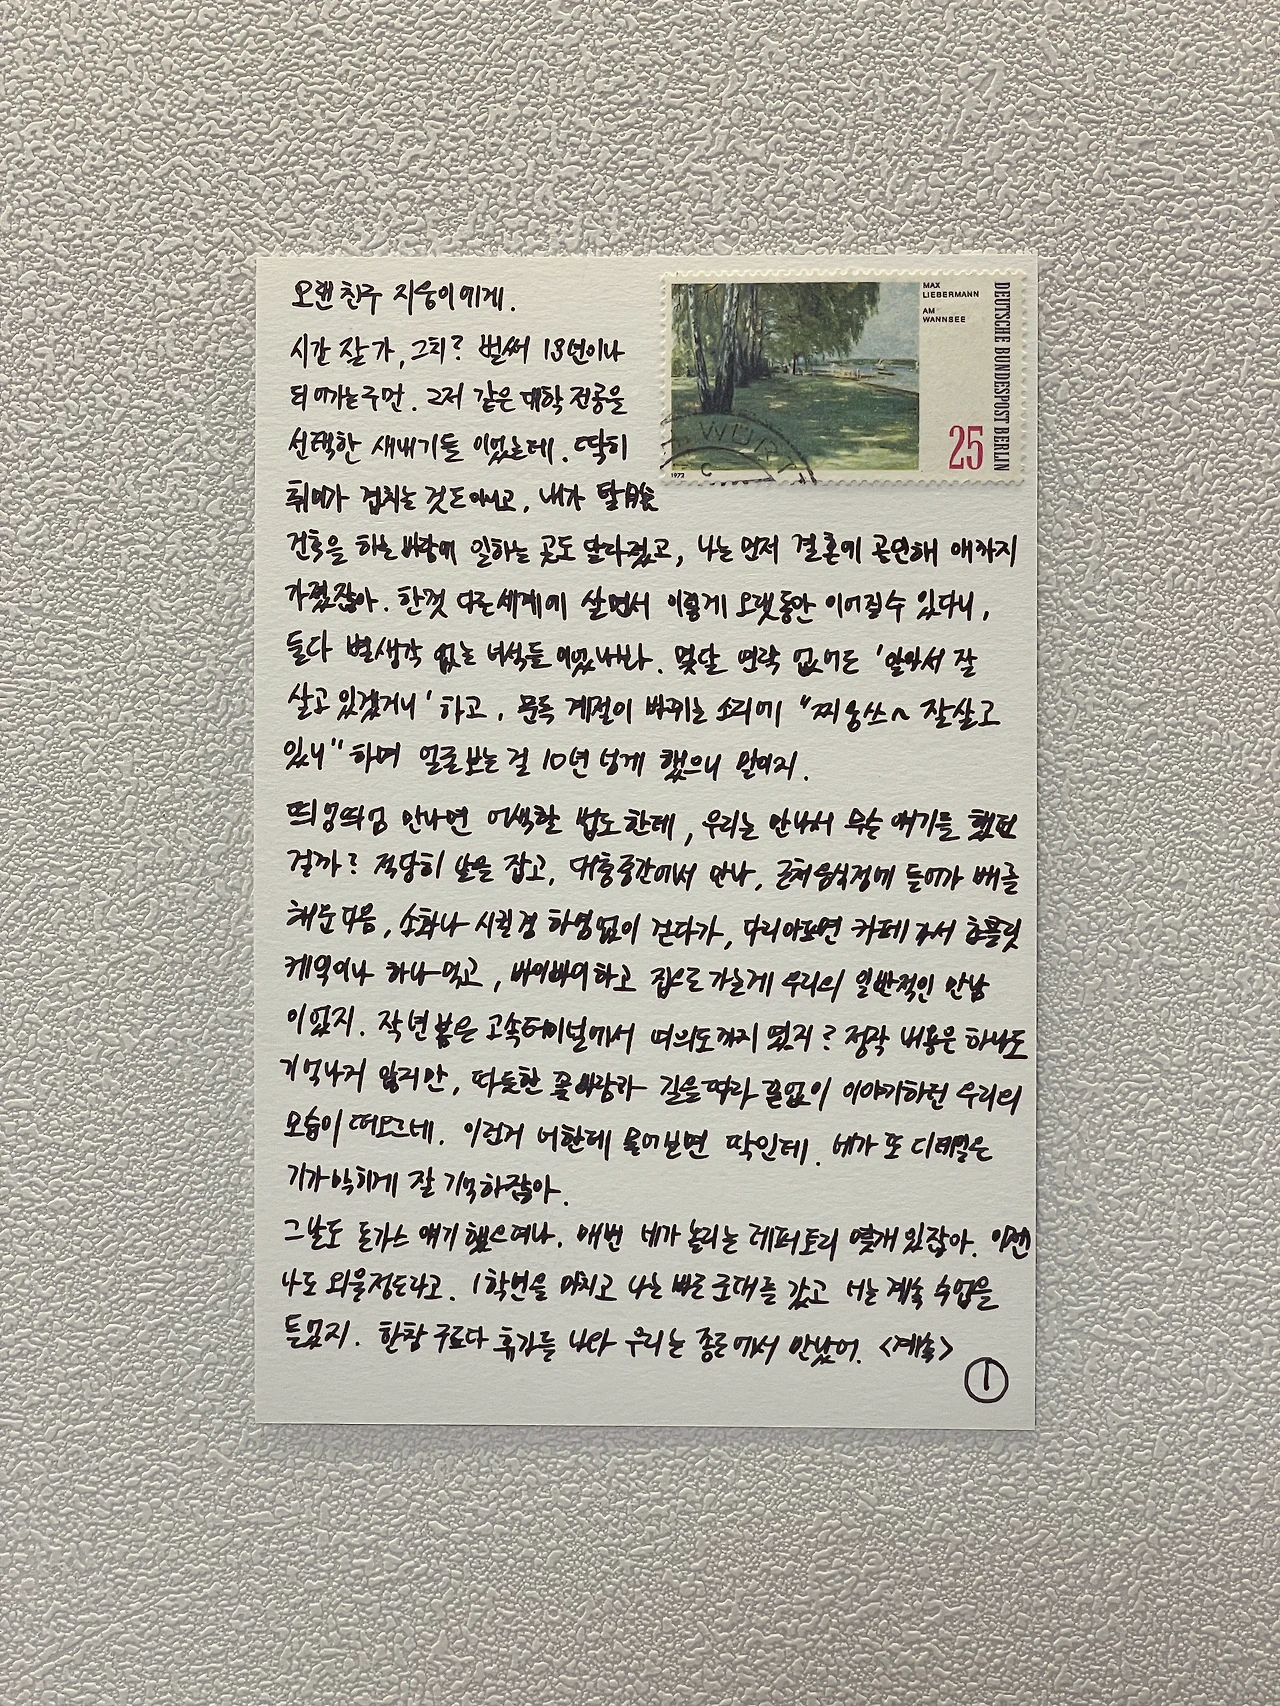 오랜 친구 지웅이에게.
MAX
LIEBERMANN
AM
WANNSEE
DEUTSCHE BUNDESPOST BERLIN
25
1972
시간 잘 가, 그치? 벌써 13년이나
되어가는구먼. 그저 같은 대학 전공을
선택한 새내기들 이었는데. 딱히
취미가 겹치는 것도 아니고, 내가 탈
건축을 하는 바람에 일하는 곳도 달라졌고, 나는 먼저 결혼에 골인해 애까지
가졌잖아. 한껏 다른 세계에 살면서 이렇게 오랫동안 이어질 수 있다니,
둘다 별생각 없는 녀석들 이었나봐. 몇달 연락 없어도 '알아서 잘
살고 있겠거니' 하고, 문득 계절이 바뀌는 소리에 "찌웅쓰~ 잘살고
있니" 하며 얼굴 보는 걸 10년 넘게 했으니 말이지.
띄엄띄엄 만나면 어색할 법도 한데, 우리는 만나서 무슨 얘기를 했던
걸까? 적당히 날을 잡고, 대충 중간에서 만나, 근처 음식점에 들어가 배를
채운 다음, 소화나 시킬 겸 하염없이 걷다가, 다리아프면 카페 가서 초콜릿
케익이나 하나 먹고, 바이바이 하고 집으로 가는게 우리의 일반적인 만남
이었지. 작년 봄은 고속터미널에서 여의도까지 였지? 정작 내용은 하나도
기억나지 않지만, 따듯한 봄바람과 길을 따라 끝없이 이야기하던 우리의
모습이 떠오르네. 이런거 너한테 물어보면 딱인데. 네가 또 디테일은
기가막히게 잘 기억하잖아.
그날도 돈가스 얘기 했으려나. 매번 네가 놀리는 레퍼토리 몇개 있잖아. 이젠
나도 외울정도라고. 1학년을 마치고 나는 바로 군대를 갔고 너는 계속 수업을
들었지. 한창 구르다 휴가를 나와 우리는 종로에서 만났어. <계속>
1